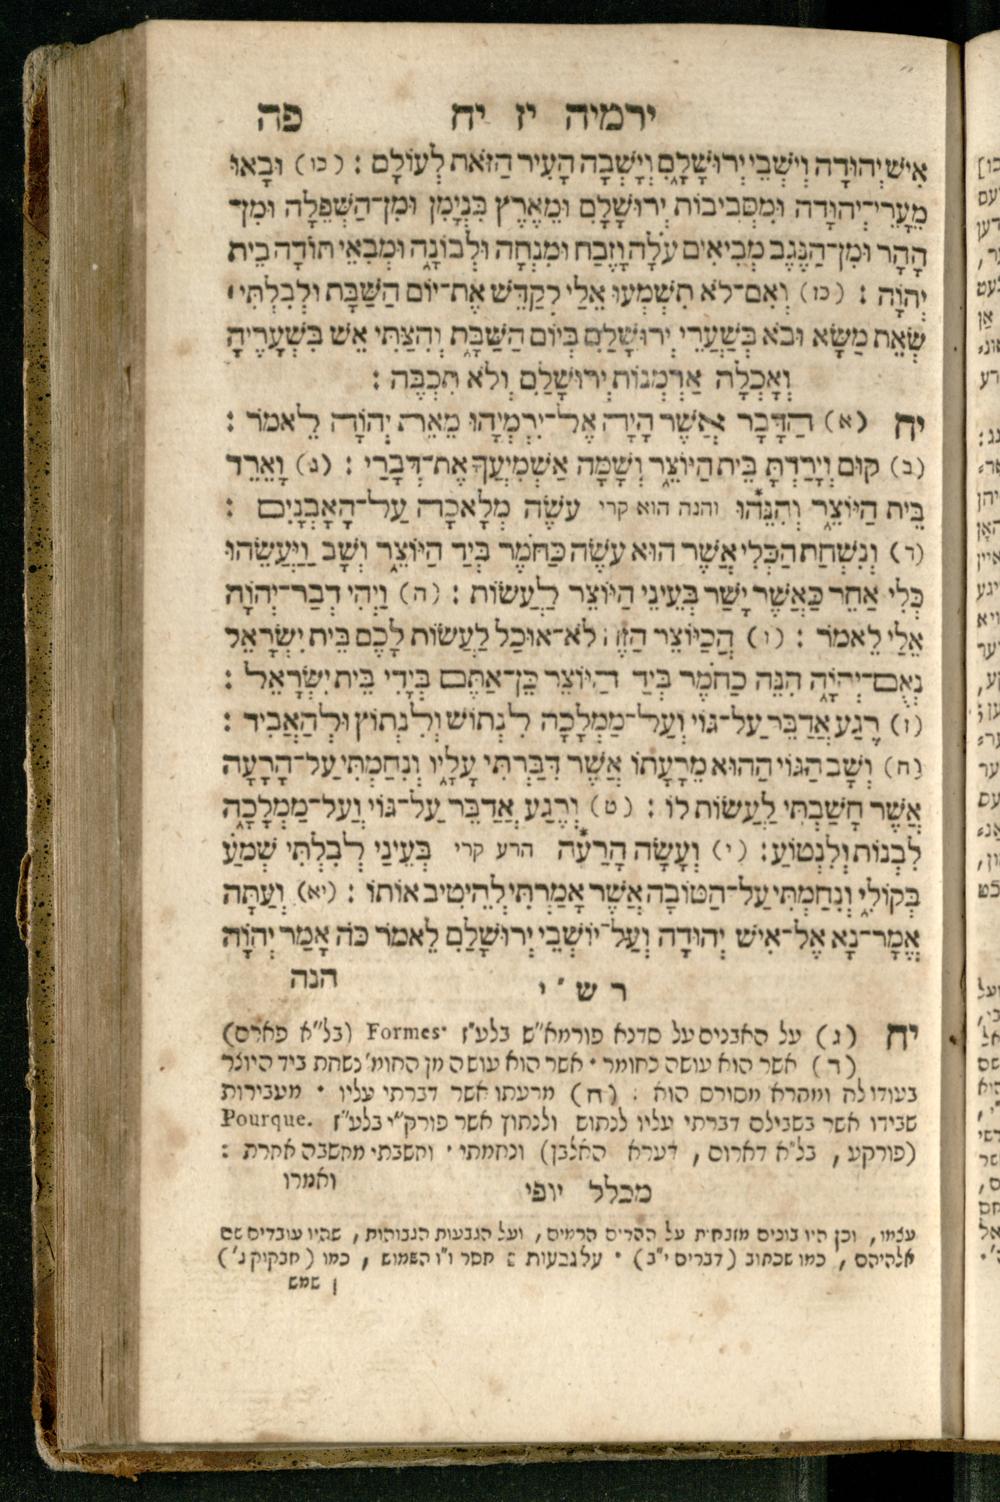 ירמיה יז יח פה
אִישׁ יְהוּדָה וְיֹשְׁבֵי יְרוּשָׁלָ͏ִם וְיָשְׁבָה הָעִיר הַזֹּאת לְעוֹלָם : (כו) וּבָאוּ
מֵעָרֵי־יְהוּדָה וּמִסְּבִיבוֹת יְרוּשָׁלַ͏ִם וּמֵאֶרֶץ בִּנְיָמִן וּמִן־הַשְּׁפֵלָה וּמִן־
הָהָר וּמִן־הַנֶּגֶב מְבִיאִים עֹלָה וָזֶבַח וּמִנְחָה וּלְבוֹנָה וּמְבִאֵי תוֹדָה בֵּית
יְהוָֹה : (כז) וְאִם־לֹא תִשְׁמְעוּ אֵלַי לְקַדֵּשׁ אֶת־יוֹם הַשַּׁבָּת וּלְבִלְתִּי ׀
שְׂאֵת מַשָּׂא וּבֹא בְּשַׁעֲרֵי יְרוּשָׁלַ͏ִם בְּיוֹם הַשַּׁבָּת וְהִצַּתִּי אֵשׁ בִּשְׁעָרֶיהָ
וְאָכְלָה אַרְמְנוֹת יְרוּשָׁלַ͏ִם וְלֹא תִכְבֶּה :
יח (א) הַדָּבָר אֲשֶׁר הָיָה אֶל־יִרְמְיָהוּ מֵאֵת יְהוָֹה לֵאמֹר :
(ב) קוּם וְיָרַדְתָּ בֵּית הַיּוֹצֵר וְשָׁמָּה אַשְׁמִיעֲךָ אֶת־דְּבָרָי : (ג) וָאֵרֵד
בֵּית הַיּוֹצֵר וְהִנֵּהוּ והנה הוא קרי עֹשֶׂה מְלָאכָה עַל־הָאָבְנָיִם :
(ד) וְנִשְׁחַת הַכְּלִי אֲשֶׁר הוּא עֹשֶׂה כַּחֹמֶר בְּיַד הַיּוֹצֵר וְשָׁב וַיַּעֲשֵׂהוּ
כְּלִי אַחֵר כַּאֲשֶׁר יָשַׁר בְּעֵינֵי הַיּוֹצֵר לַעֲשׂוֹת : (ה) וַיְהִי דְבַר־יְהוָֹה
אֵלַי לֵאמֹר : (ו) הֲכַיּוֹצֵר הַזֶּה לֹא־אוּכַל לַעֲשׂוֹת לָכֶם בֵּית יִשְׂרָאֵל
נְאֻם־יְהוָֹה הִנֵּה כַחֹמֶר בְּיַד הַיּוֹצֵר כֵּן־אַתֶּם בְּיָדִי בֵּית יִשְׂרָאֵל :
(ז) רֶגַע אֲדַבֵּר עַל־גּוֹי וְעַל־מַמְלָכָה לִנְתוֹשׁ וְלִנְתוֹץ וּלְהַאֲבִיד :
(ח) וְשָׁב הַגּוֹי הַהוּא מֵרָעָתוֹ אֲשֶׁר דִּבַּרְתִּי עָלָיו וְנִחַמְתִּי עַל־הָרָעָה
אֲשֶׁר חָשַׁבְתִּי לַעֲשׂוֹת לוֹ : (ט) וְרֶגַע אֲדַבֵּר עַל־גּוֹי וְעַל־מַמְלָכָה
לִבְנוֹת וְלִנְטוֹעַ: (י) וְעָשָׂה הָרַעָה הרע קרי בְּעֵינַי לְבִלְתִּי שְׁמֹעַ
בְּקוֹלִי וְנִחַמְתִּי עַל־הַטּוֹבָה אֲשֶׁר אָמַרְתִּי לְהֵיטִיב אוֹתוֹ : (יא) וְעַתָּה
אֱמָר־נָא אֶל־אִישׁ יְהוּדָה וְעַל־יוֹשְׁבֵי יְרוּשָׁלַ͏ִם לֵאמֹר כֹּה אָמַר יְהוָֹה
הנה
רש״י
יח (ג) על האבנים על סדנא פורמא״ש בלע״ז Formes (בל״א פארם)
(ד) אשר הוא עושה כחומר · אשר הוא עושה מן החומ׳ נשחת ביד היוצר
בעודו לח ומקרא מסורס הוא : (ח) מרעתו אשר דברתי עליו · מעבירות
שבידו אשר בשבילם דברתי עליו לנתוש ולנתוץ אשר פורק״י בלע״ז Pourque.
(פורקע, בל״א דארום, דערא האלבן) ונחמתי · וחשבתי מחשבה אחרת :
ואמרו
מכלל יופי
עצמו, וכן היו בונים מזבחות על ההרים הרמים, ועל הגבעות הגבוהות, שהיו עובדים שם
אלהיהם, כמו שכתוב (דברים י״ב) · על גבעות : חסר ו״ו השמוש, כמו (חבקוק ג׳)
שמש